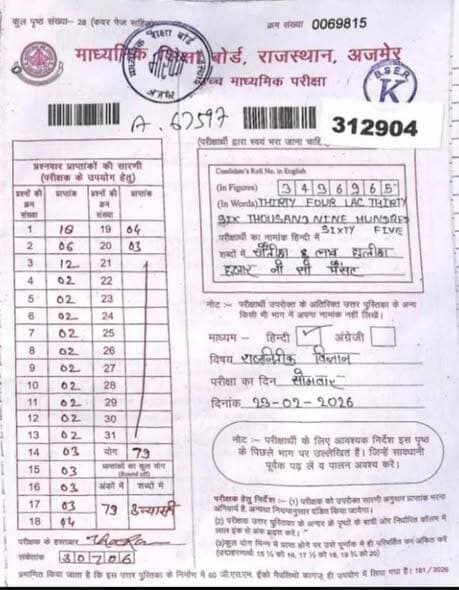 कुल पृष्ठ संख्या- 28 (कवर पेज सहित)
क्रम संख्या 0069815
माध्यमिक शिक्षा बोर्ड, राजस्थान, अजमेर
उच्च माध्यमिक परीक्षा
B.S.E.R.
K
A. 67597
312904
(परीक्षार्थी द्वारा स्वयं भरा जाना चाहि
प्रश्नवार प्राप्तांकों की सारणी
(परीक्षक के उपयोग हेतु)
प्रश्नों की क्रम संख्या प्राप्तांक प्रश्नों की क्रम संख्या प्राप्तांक
1 18 19 04
2 06 20 03
3 12 21
4 02 22
5 02 23
6 02 24
7 02 25
8 02 26
9 02 27
10 02 28
11 02 29
12 02 30
13 02 31
14 03 योग 79
15 03 प्राप्तांकों का कुल योग (Round off)
16 03 अंकों में शब्दों में
17 03 79 उन्यासी
18 04
परीक्षक के हस्ताक्षर
संकेतांक 30706
Candidate's Roll No. in English
(In Figures) 3436965
(In Words) THIRTY FOUR LAC THIRTY
SIX THOUSAND NINE HUNDRED
SIXTY FIVE
परीक्षार्थी का नामांक हिन्दी में
शब्दों में चौंतीस लाख छत्तीस
हजार नौ सौ पैंसठ
नोट :– परीक्षार्थी उपरोक्त के अतिरिक्त उत्तर पुस्तिका के अन्य
किसी भी भाग में अपना नामांक नहीं लिखें।
माध्यम – हिन्दी ✓ अंग्रेजी
विषय राजनीतिक विज्ञान
परीक्षा का दिन सोमवार
दिनांक 23-02-2026
नोट :– परीक्षार्थी के लिए आवश्यक निर्देश इस पृष्ठ
के पिछले भाग पर उल्लेखित है। जिन्हें सावधानी
पूर्वक पढ़ लें व पालन अवश्य करें।
परीक्षक हेतु निर्देश :– (1) परीक्षक को उपरोक्त सारणी अनुसार प्राप्तांक भरना
अनिवार्य है, अन्यथा नियमानुसार दंडित किया जायेगा।
(2) परीक्षक उत्तर पुस्तिका के अन्दर के पृष्ठों के बायीं ओर निर्धारित कॉलम में
लाल इंक से अंक प्रदान करें।
(3) कुल योग भिन्न में प्राप्त होने पर उसे पूर्णांक में ही परिवर्तित कर अंकित करें
(उदाहरणार्थ: 15 ½ को 16, 17 ½ को 18, 19 ½ को 20)
प्रमाणित किया जाता है कि इस उत्तर पुस्तिका के निर्माण में 60 जी.एस.एम. क्रीमवोव कागज ही उपयोग में लिया गया है। 181 / 2026